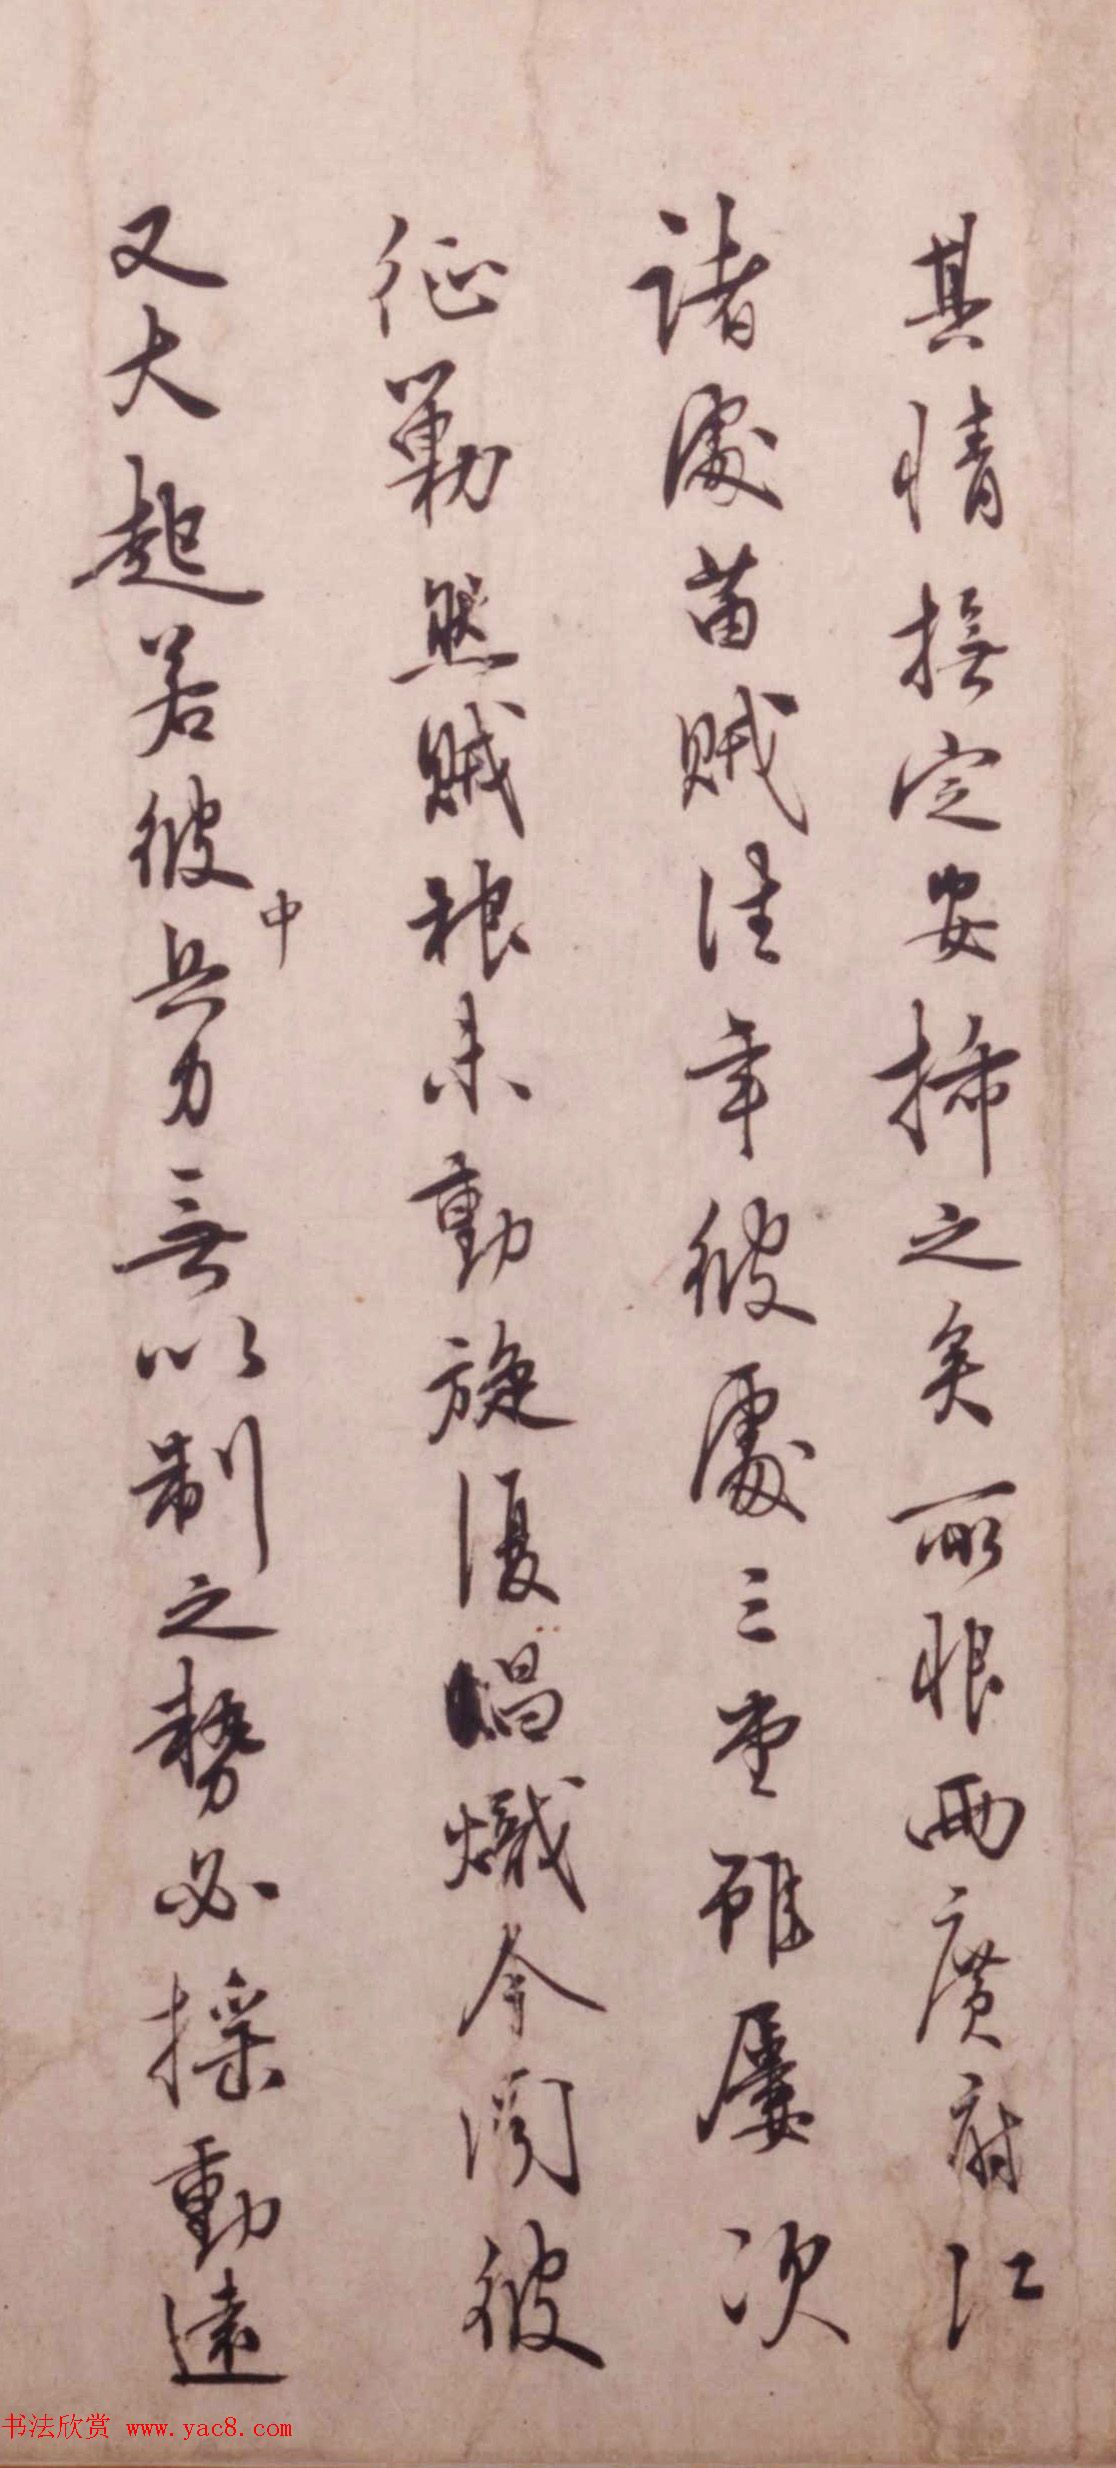 其情撫定安揷之矣所恨兩廣府江
諸處苗賊往年彼處三堂雖屢次
征勦然賊根未動旋復昌熾今聞彼
又大起若彼中兵力無以制之勢必搖動遠
书法欣赏 www.yac8.com